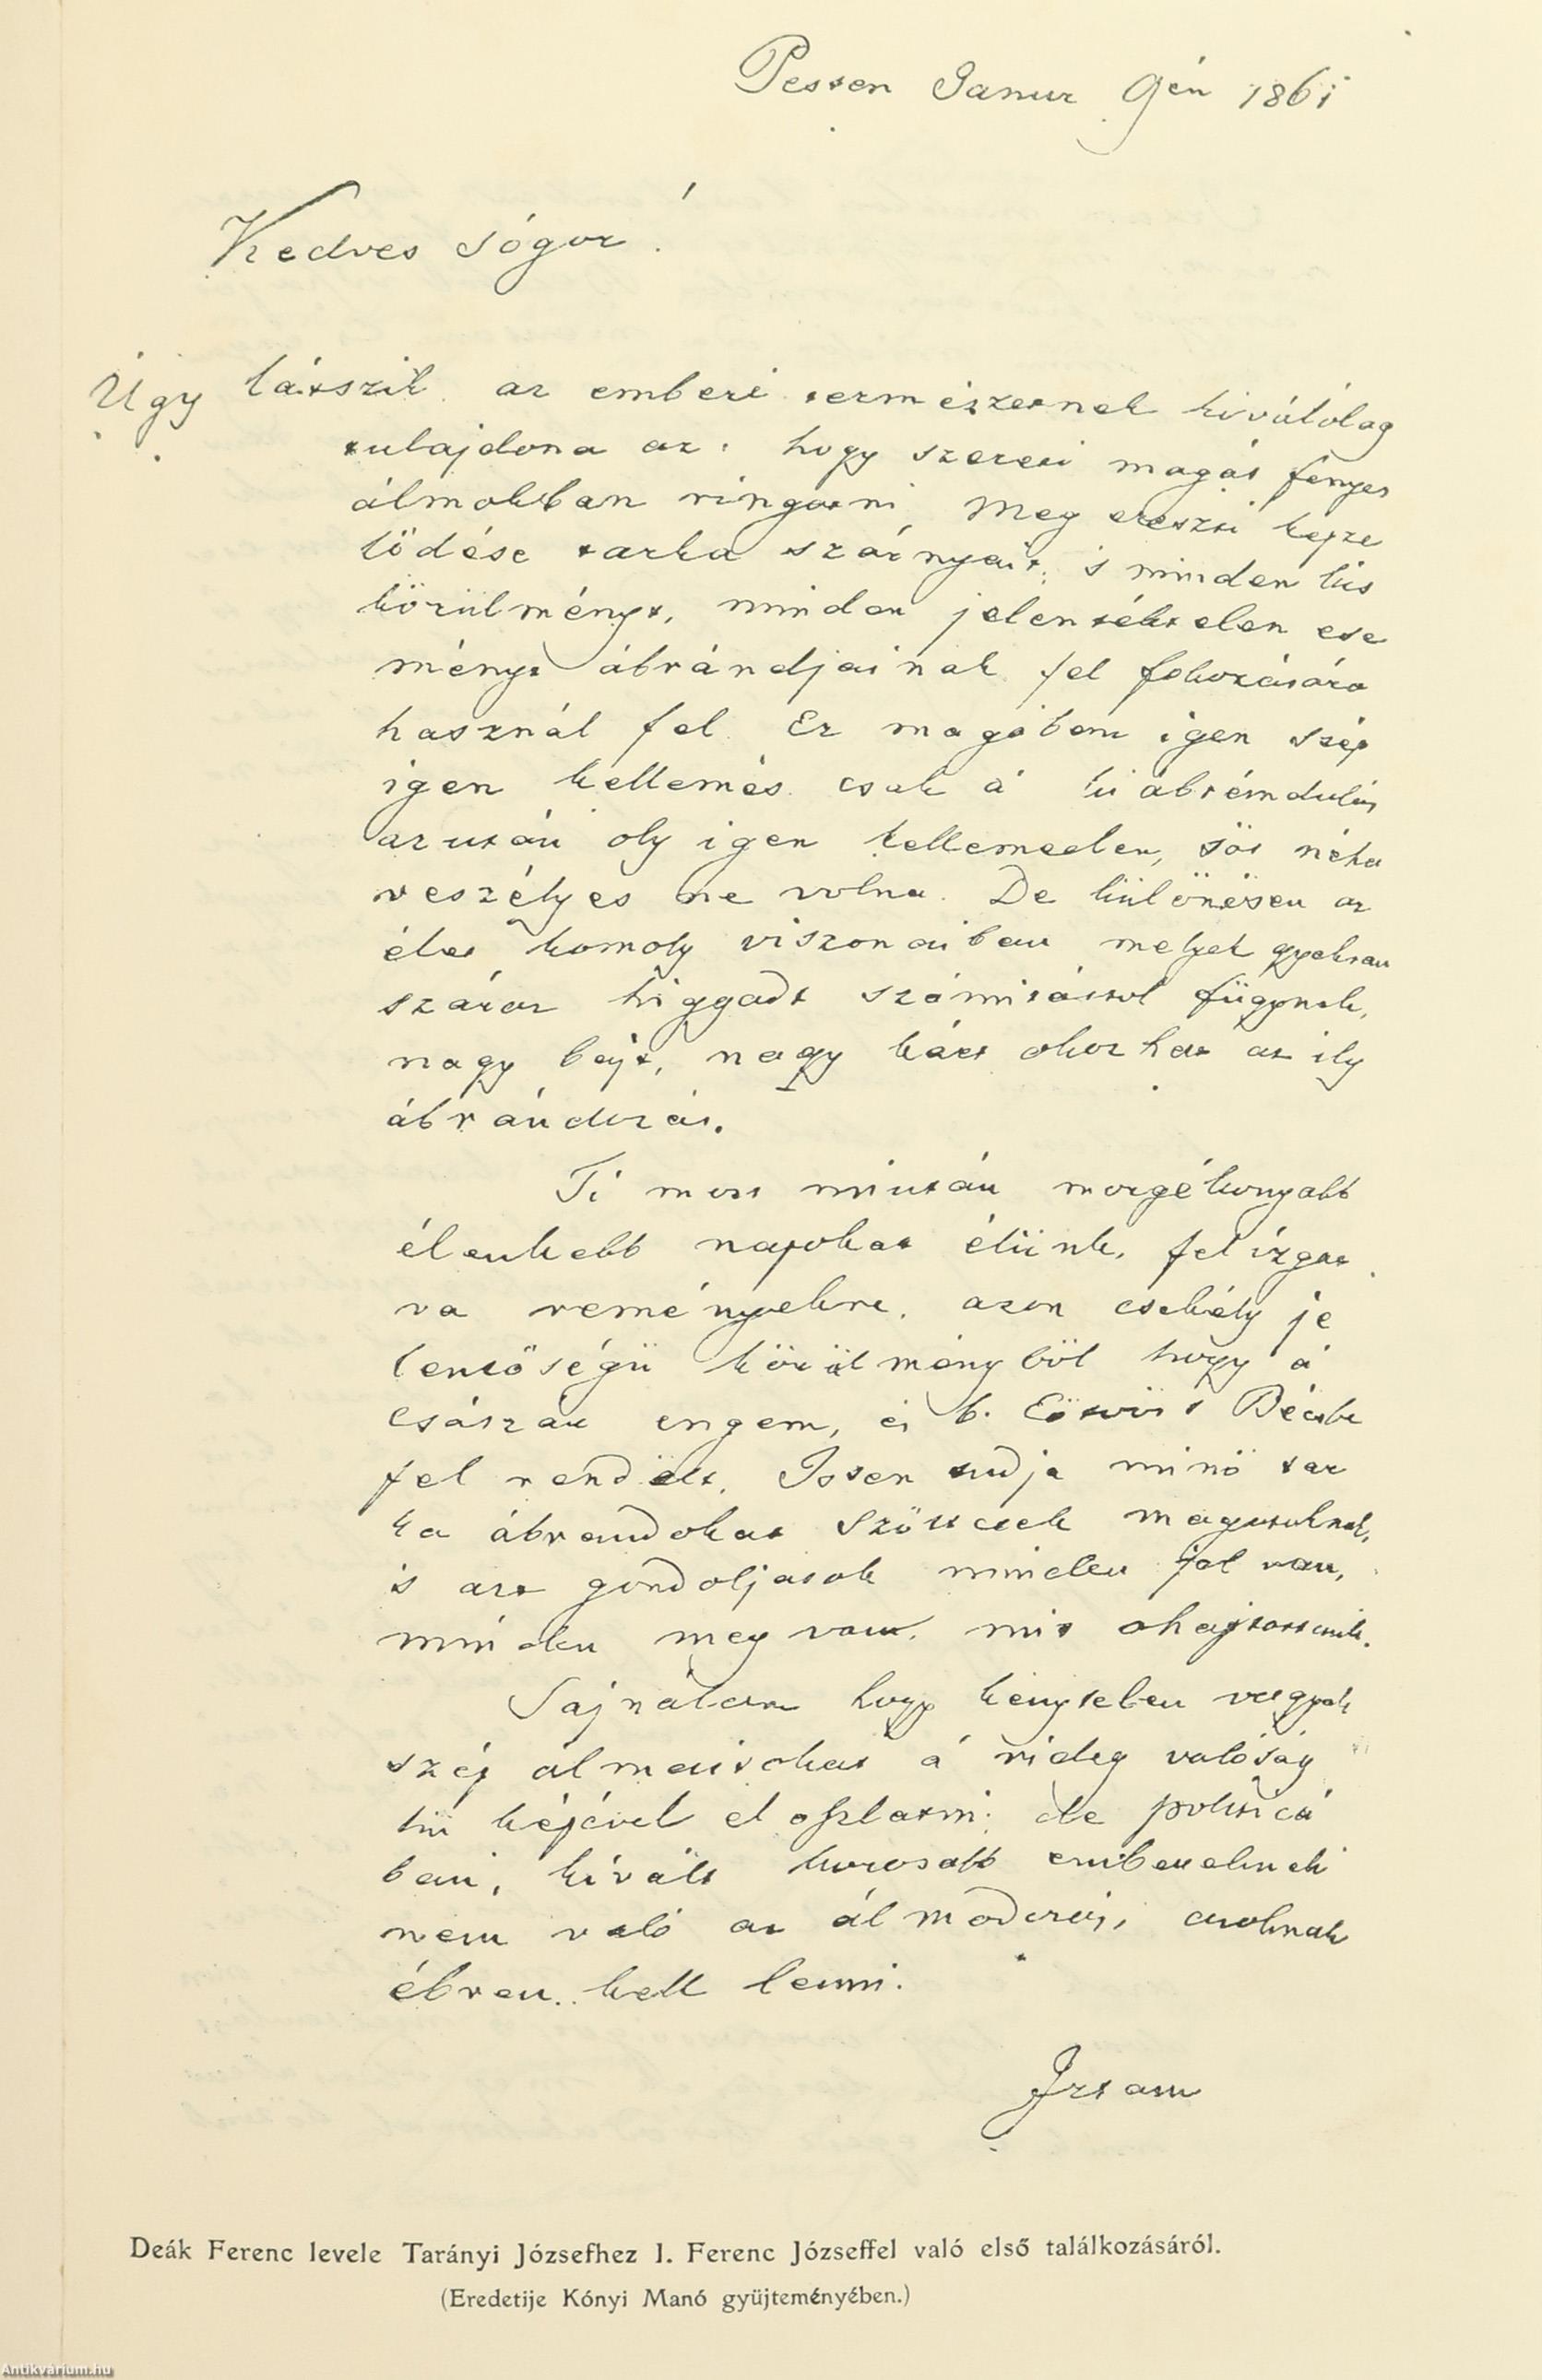 Pesten Januar 9én 1861
Kedves sógor!
Úgy látszik az emberi természetnek kiválólag
tulajdona az, hogy szereti magát fényes
álmokban ringatni. Meg ereszti képze
lödése tarka szárnyait, s minden kis
körülményt, minden jelentéktelen ese
ményt ábrándjainak fel fokozására
használ fel. Ez magában igen szép
igen kellemes csak á ki ábrándulás
azután oly igen kellemetlen, söt néha
veszélyes ne volna. De különösen az
élet komoly viszonaiban melyek gyakran
száraz higgadt számitástol függnek,
nagy bajt, nagy kárt okozhat az ily
ábrándozás.
Ti most miután mozgékonyabb
élenkebb napokat élünk, fel izgat
va reményekre, azon csekély je
lentöségü körülményböl hogy á
császár engem, és b. Eötvöst Bécsbe
fel rendelt, Isten tudja minö tar
ka ábrandokat szöttetek magatoknak,
is azt gondoljatok minden jol van,
minden meg van, mit ohajtottunk.
Sajnálom hogy kénytelen vagyok
szép álmaitokat á rideg valóság
hü képével el oszlatni; de politicá
ban, kivált korosabb embereknek
nem való az álmodozás, azoknak
ébren kell lenni.
Irtam
Deák Ferenc levele Tarányi Józsefhez I. Ferenc Józseffel való első találkozásáról.
(Eredetije Kónyi Manó gyüjteményében.)
Antikvárium.hu